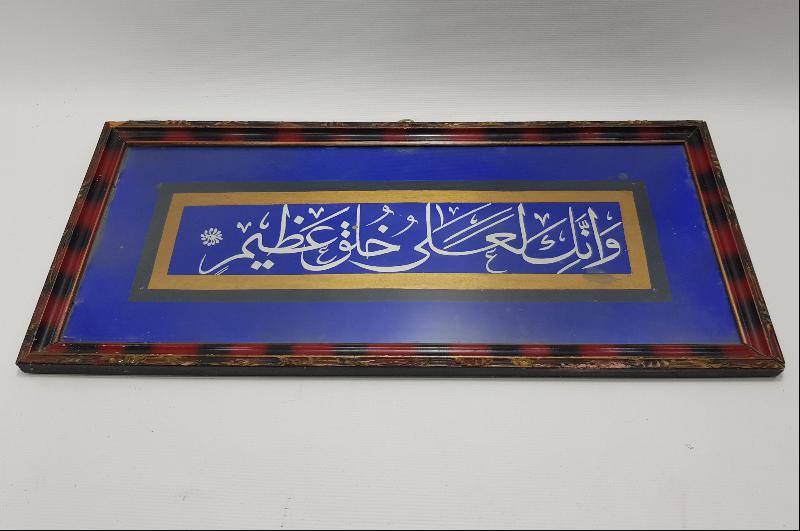 وَانَّكَ لَعَلٰى خُلُقٍ عَظٖيمٍ